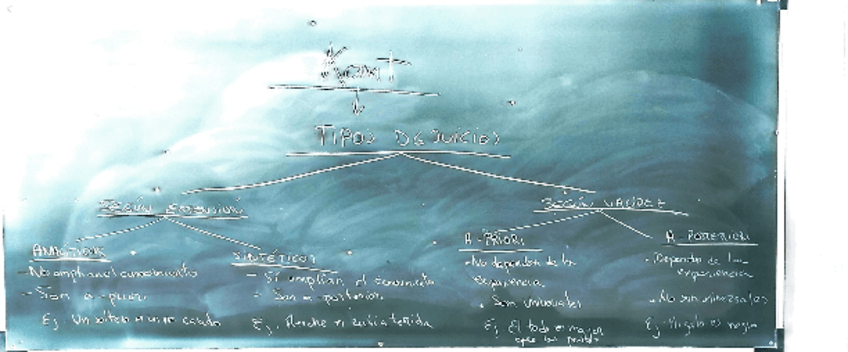 Kant
TIPOS DE JUICIOS
SEGÚN EXTENSIÓN
SEGÚN VALIDEZ
ANALÍTICOS
- No amplían el conocimiento
- Son a priori
Ej: Un soltero no casado
SINTÉTICOS
- Sí amplían el conocimiento
- Son a posteriori
Ej: teñida
A-PRIORI
- No dependen de la
experiencia
- Son universales
Ej: El todo es mayor
que las partes
A-POSTERIORI
- Dependen de la
experiencia
- No son universales
Ej: Mi gato es negro